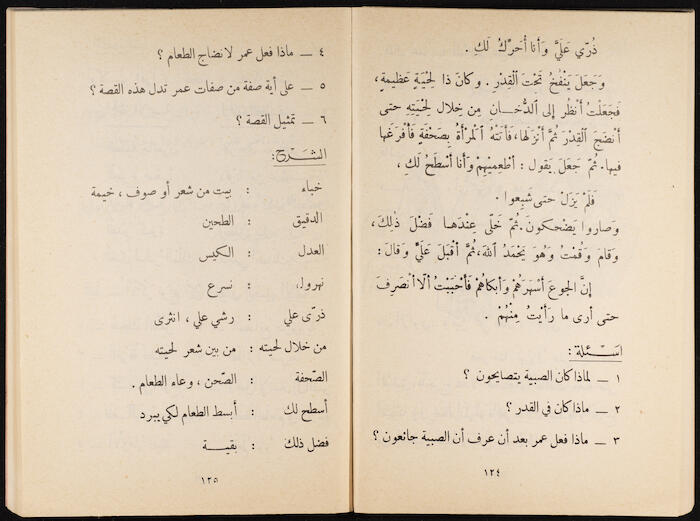 ذُرِّي عَلَيَّ وَأنا أُحَرِّكُ لَكِ .
وَجَعَلَ يَنْفُخُ تَحْتَ الْقِدْرِ . وكانَ ذا لِحْيَةٍ عَظيمَةٍ ،
فَجَعَلْتُ أَنْظُرُ إلى الدُّخـانِ مِن خِلال لِحْيَتِهِ حتى
أَنْضَجَ القِدْرَ ثُمَّ أَنْزَلَها، فَأَتَتْهُ الْمَرْأَةُ بِصَحْفَةٍ فَأَفْرَغَها
فيها. ثُمّ جَعَلَ يَقول : أَطْعِميْهِمْ وَأنا أَسْطَحُ لَكِ ،
فَلَمْ يَزَلْ حتى شَبِعوا .
وَصاروا يَضْحَكونَ. ثُمّ خَلّى عِنْدَهـا فَضْلَ ذلِكَ،
وَقامَ وَقُمْتُ وَهُوَ يَحْمَدُ اللهَ، ثُمَّ أَقْبَلَ عَلَيَّ وَقالَ :
إنَّ الجوعَ أَسْهَرَهُمْ وَأَبكاهُمْ فَأَحْبَبْتُ أَلاّ أَنْصَرِفَ
حتى أرى ما رَأَيْتُ مِنْهُمْ .
اسْـئلة :
١ – لماذا كان الصبية يتصايحون ؟
٢ – ماذا كان في القدر ؟
٣ – ماذا فعل عمر بعد أن عرف أن الصبية جائعون ؟
١٢٤
٤ – ماذا فعل عمر لانضاج الطعام ؟
٥ – على أية صفة من صفات عمر تدل هذه القصة ؟
٦ – تمثيل القصة ؟
الشـرح :
خباء : بيت من شعر أو صوف ، خيمة
الدقيق : الطحين
العدل : الكيس
نهرول : نسرع
ذرّى علي : رشي علي ، انثرى
من خلال لحيته : من بين شعر لحيته
الصّحفة : الصّحن ، وعاء الطعام .
أسطح لك : أبسط الطعام لكي يبرد
فضل ذلك : بقيـة
١٢٥